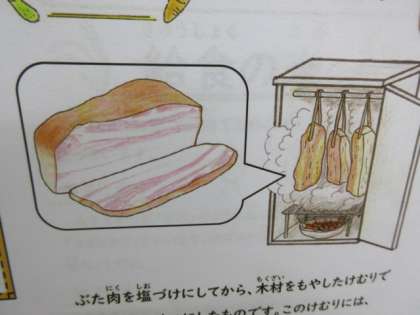 ぶた肉を塩づけにしてから、木材をもやしたけむりで
したものです。このけむりには、